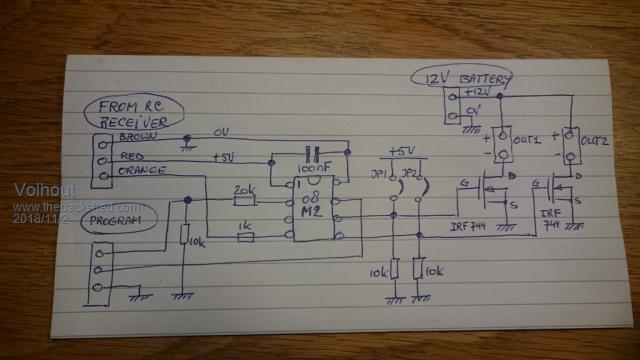 12V BATTERY
+12V
0V
FROM RC
RECEIVER
BROWN
0V
RED
+5V
ORANGE
100nF
+5V
+
OUT1
-
+
OUT2
-
1
08
M2
20k
1k
10k
JP1
JP2
G
D
S
IRF744
G
D
S
IRF
744
10k
10k
PROGRAM
Volhout
www.thebackshed.com
2018/11/2